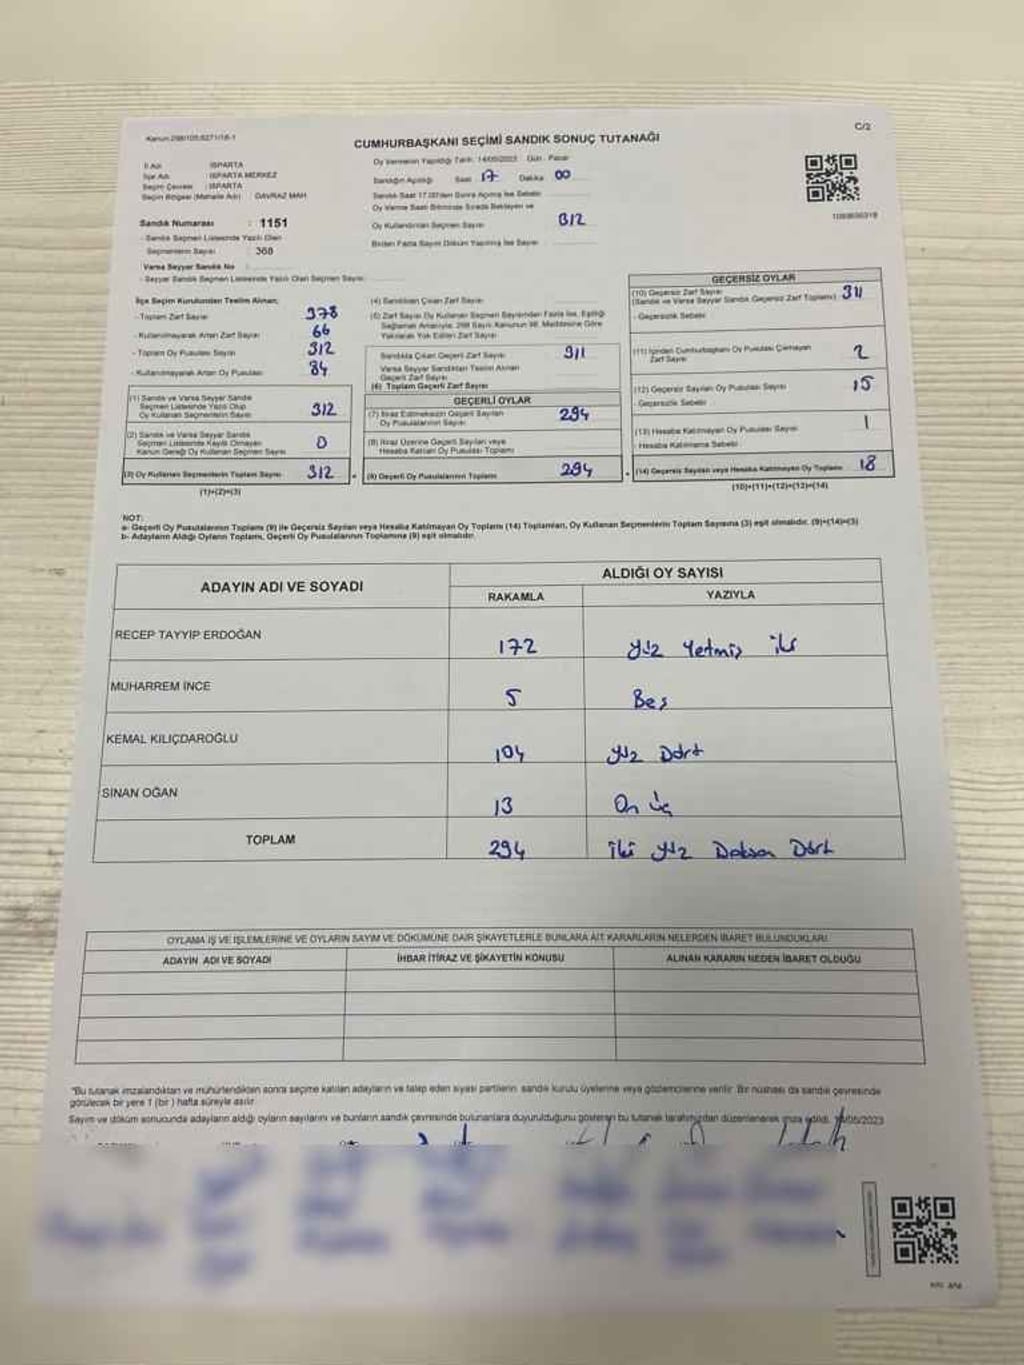 C/2
CUMHURBAŞKANI SEÇİMİ SANDIK SONUÇ TUTANAĞI
İl Adı : ISPARTA
İlçe Adı : ISPARTA MERKEZ
Seçim Çevresi : ISPARTA
Seçim Bölgesi (Mahalle Adı) : DAVRAZ MAH.
Sandık Numarası : 1151
- Sandık Seçmen Listesinde Yazılı Olan
Seçmenlerin Sayısı : 368
Varsa Seyyar Sandık No :
- Seyyar Sandık Seçmen Listesinde Yazılı Olan Seçmen Sayısı:
Oy Vermenin Yapıldığı Tarih: 14/05/2023 Gün : Pazar
Sandığın Açıldığı Saat 17 Dakika 00
Sandık Saat 17.00'den Sonra Açılmış İse Sebebi
Oy Verme Saati Bitiminde Sırada Bekleyen ve
Oy Kullandırılan Seçmen Sayısı 312
Birden Fazla Sayım Döküm Yapılmış İse Sayısı
İlçe Seçim Kurulundan Teslim Alınan;
- Toplam Zarf Sayısı 378
- Kullanılmayarak Artan Zarf Sayısı 66
- Toplam Oy Pusulası Sayısı 312
- Kullanılmayarak Artan Oy Pusulası 84
(1) Sandık ve Varsa Seyyar Sandık
Seçmen Listesinde Yazılı Olup
Oy Kullanan Seçmenlerin Sayısı 312
(2) Sandık ve Varsa Seyyar Sandık
Seçmen Listesinde Kaydı Olmayan
Kanun Gereği Oy Kullanan Seçmen Sayısı 0
(3) Oy Kullanan Seçmenlerin Toplam Sayısı 312
(1)+(2)=(3)
(4) Sandıktan Çıkan Zarf Sayısı
(5) Zarf Sayısı Oy Kullanan Seçmen Sayısından Fazla İse, Eşitliği
Sağlamak Amacıyla, 298 Sayılı Kanunun 98. Maddesine Göre
Yakılarak Yok Edilen Zarf Sayısı
Sandıkta Çıkan Geçerli Zarf Sayısı 311
Varsa Seyyar Sandıktan Teslim Alınan
Geçerli Zarf Sayısı
(6) Toplam Geçerli Zarf Sayısı
GEÇERLİ OYLAR
(7) İtiraz Edilmeksizin Geçerli Sayılan
Oy Pusulalarının Sayısı 294
(8) İtiraz Üzerine Geçerli Sayılan veya
Hesaba Katılan Oy Pusulası Toplamı
(9) Geçerli Oy Pusulalarının Toplamı 294
GEÇERSİZ OYLAR
(10) Geçersiz Zarf Sayısı 311
(Sandık ve Varsa Seyyar Sandık Geçersiz Zarf Toplamı)
- Geçersizlik Sebebi
(11) İçinden Cumhurbaşkanı Oy Pusulası Çıkmayan
Zarf Sayısı 2
(12) Geçersiz Sayılan Oy Pusulası Sayısı 15
- Geçersizlik Sebebi
(13) Hesaba Katılmayan Oy Pusulası Sayısı 1
- Hesaba Katılmama Sebebi
(14) Geçersiz Sayılan veya Hesaba Katılmayan Oy Toplamı 18
(10)+(11)+(12)+(13)=(14)
NOT:
a- Geçerli Oy Pusulalarının Toplamı (9) ile Geçersiz Sayılan veya Hesaba Katılmayan Oy Toplamı (14) Toplamları, Oy Kullanan Seçmenlerin Toplam Sayısına (3) eşit olmalıdır. (9)+(14)=(3)
b- Adayların Aldığı Oyların Toplamı, Geçerli Oy Pusulalarının Toplamına (9) eşit olmalıdır.
ADAYIN ADI VE SOYADI ALDIĞI OY SAYISI
RAKAMLA YAZIYLA
RECEP TAYYİP ERDOĞAN 172 Yüz Yetmiş iki
MUHARREM İNCE 5 Beş
KEMAL KILIÇDAROĞLU 104 Yüz Dört
SİNAN OĞAN 13 On üç
TOPLAM 294 iki yüz Doksan Dört
OYLAMA İŞ VE İŞLEMLERİNE VE OYLARIN SAYIM VE DÖKÜMÜNE DAİR ŞİKAYETLERLE BUNLARA AİT KARARLARIN NELERDEN İBARET BULUNDUKLARI
ADAYIN ADI VE SOYADI İHBAR İTİRAZ VE ŞİKAYETİN KONUSU ALINAN KARARIN NEDEN İBARET OLDUĞU
"Bu tutanak imzalandıktan ve mühürlendikten sonra seçime katılan adayların ve talep eden siyasi partilerin sandık kurulu üyelerine veya gözlemcilerine verilir. Bir nüshası da sandık çevresinde
görülecek bir yere 1 (bir) hafta süreyle asılır.
Sayım ve döküm sonucunda adayların aldığı oyların sayılarını ve bunların sandık çevresinde bulunanlara duyurulduğunu gösteren bu tutanak tarafımızdan düzenlenerek imza edildi.